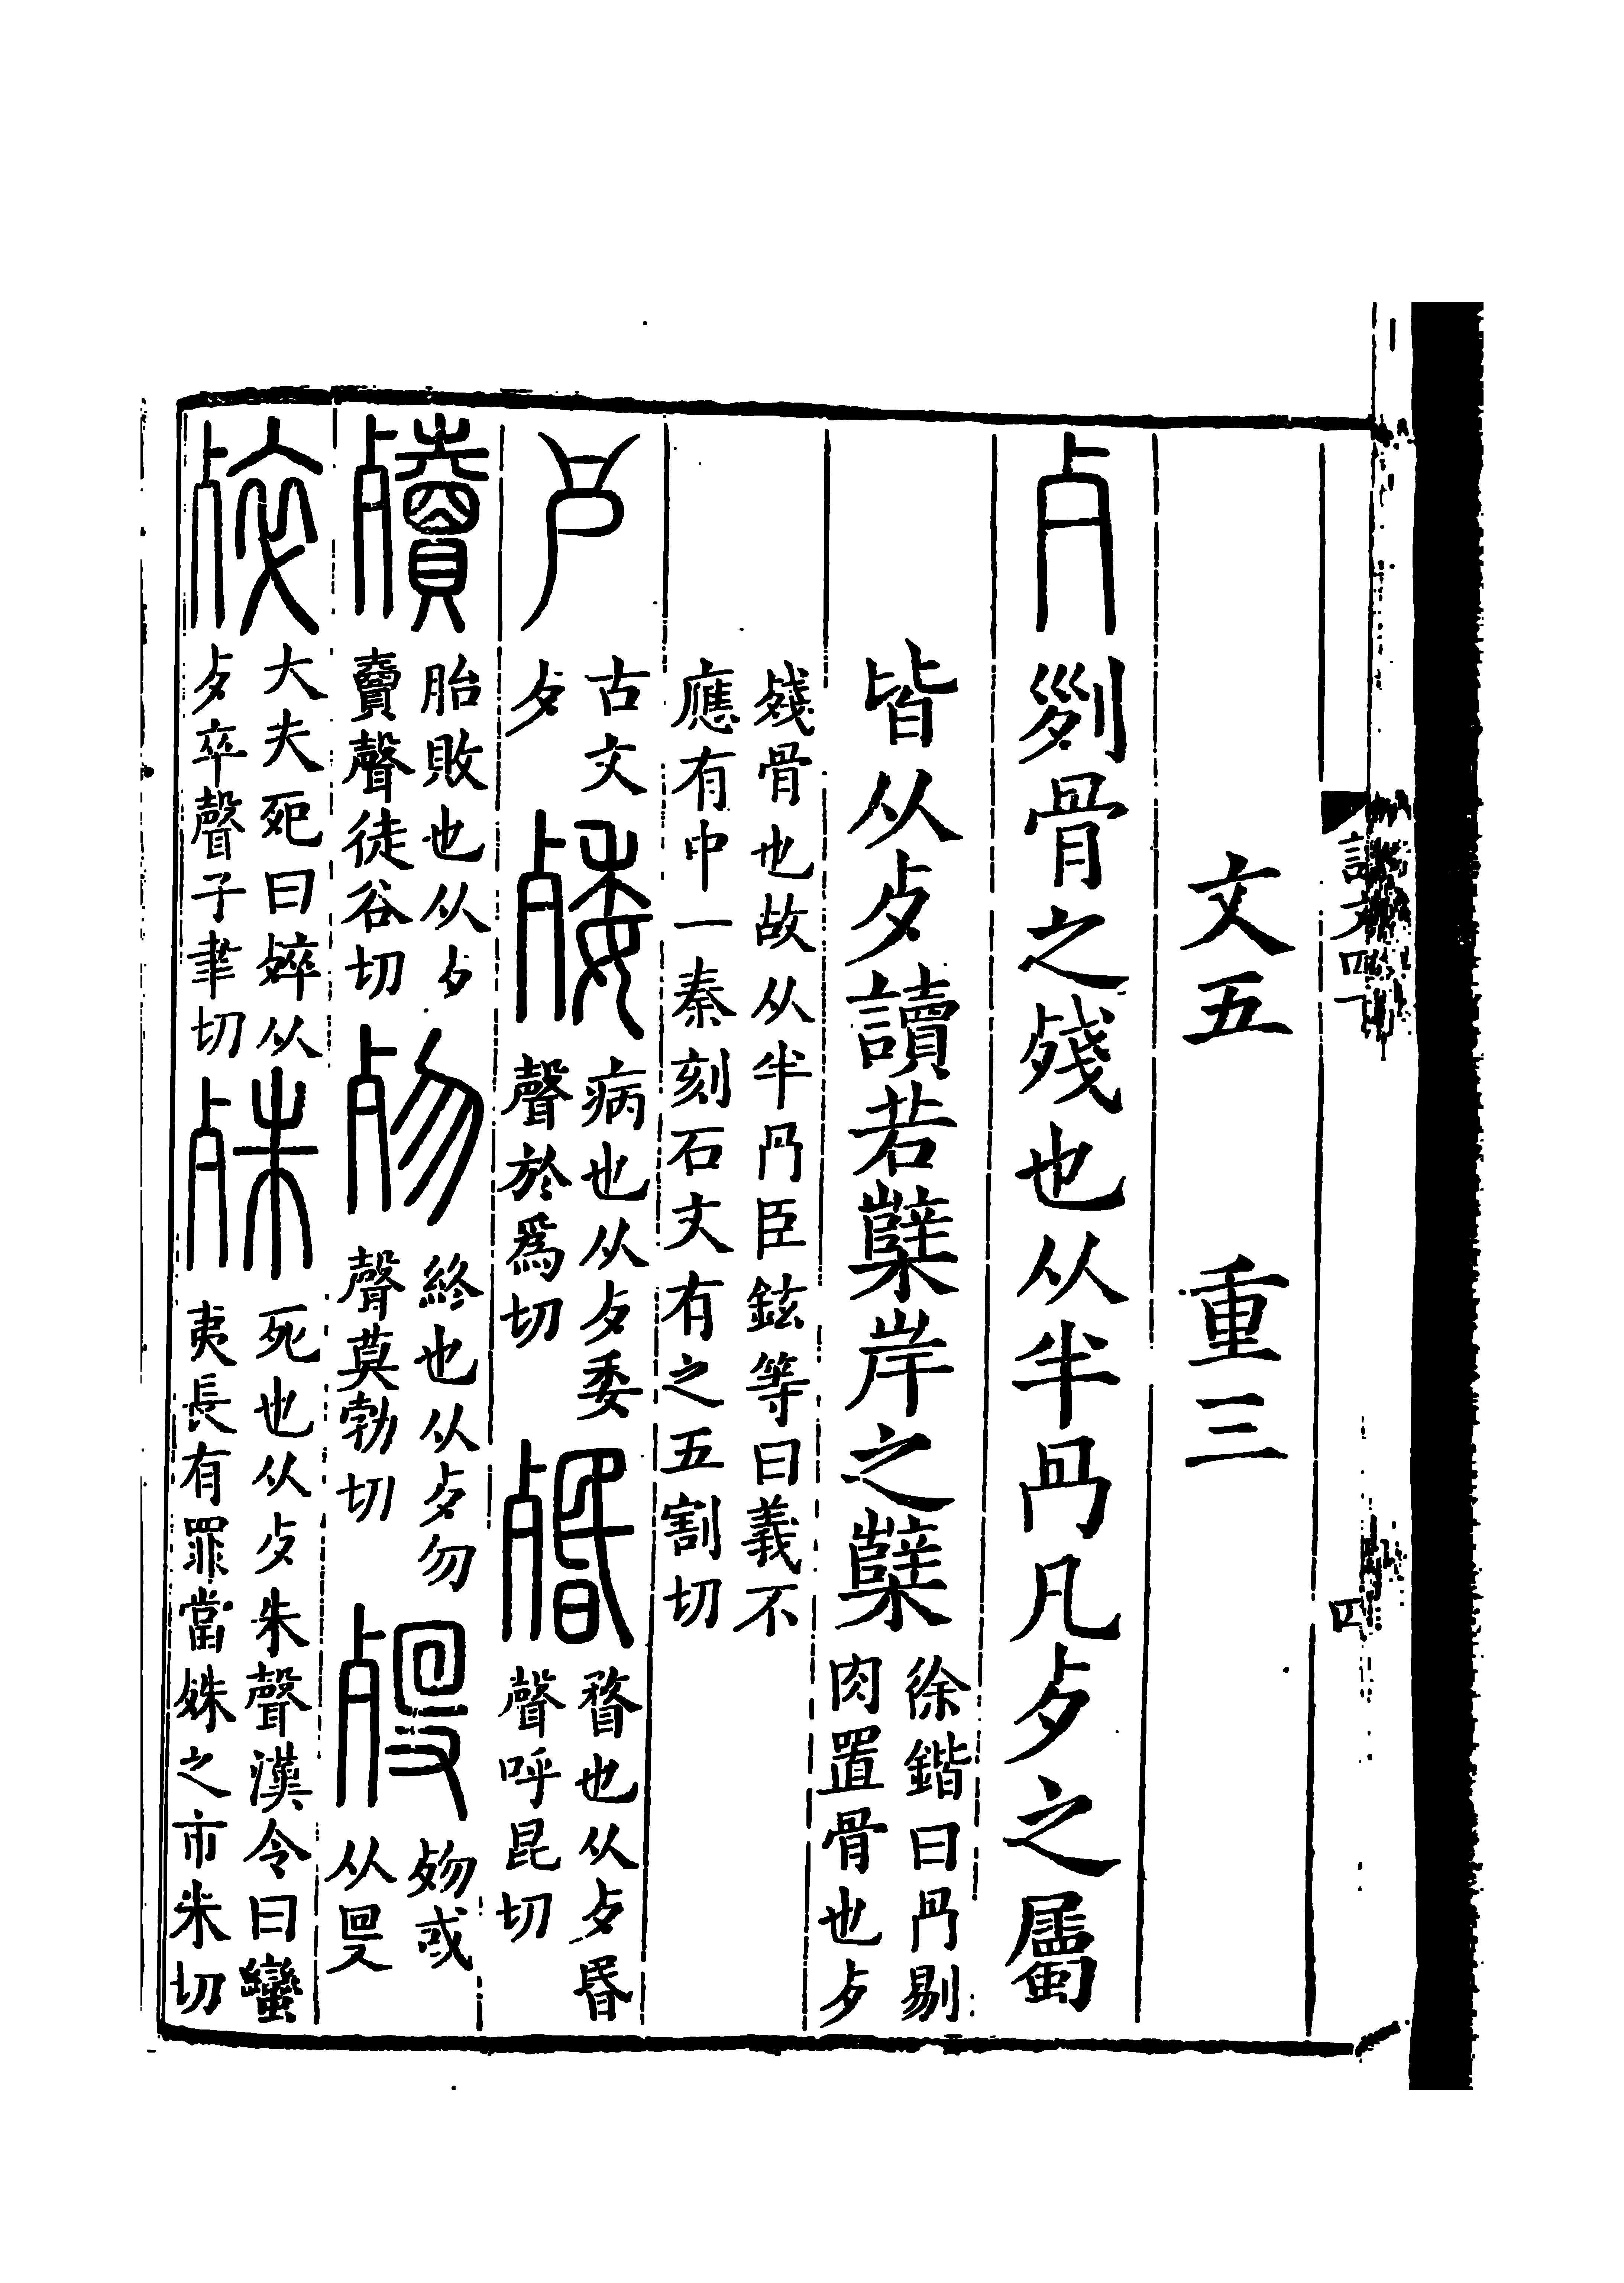 說文四下 四
文五 重三
歺 𠛱骨之殘也从半冎凡歺之屬
皆从歺讀若櫱岸之櫱 徐鍇曰冎剔
肉置骨也歺
殘骨也故从半冎臣鉉等曰義不
應有中一秦刻石文有之五割切
𣦵 古文
歺
𣨙 病也从歺委
聲於爲切
殙 瞀也从歺昏
聲呼昆切
殰 胎敗也从歺
𧶠聲徒谷切
歾 終也从歺勿
聲莫勃切
歿 歾或
从𠬸
㱖 大夫死曰㱖从
歺卒聲子聿切
殊 死也从歺朱聲漢令曰蠻
夷長有罪當殊之市朱切